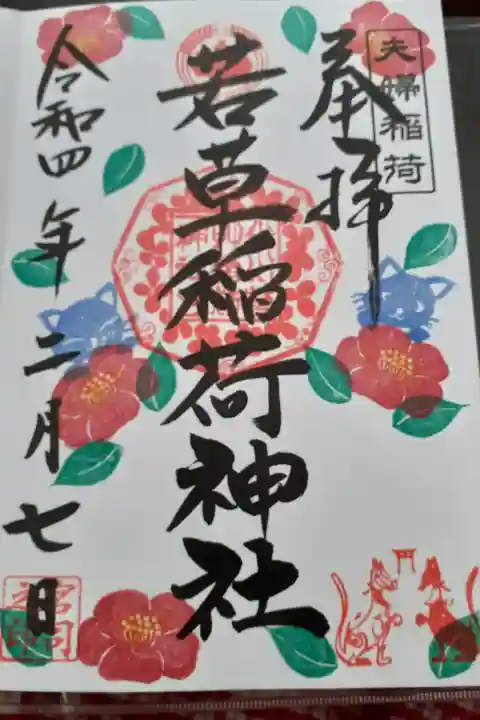 夫婦稲荷
奉拝
若草稲荷神社
令和四年二月七日